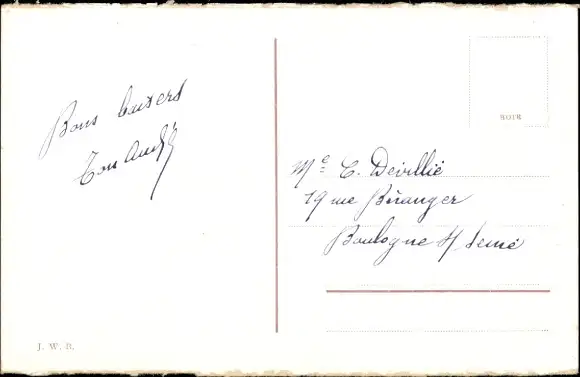 Bons baisers
Ton André
NOIR
Me C. Devillié
19 rue Béranger
Boulogne s/ seine
J. W. B.